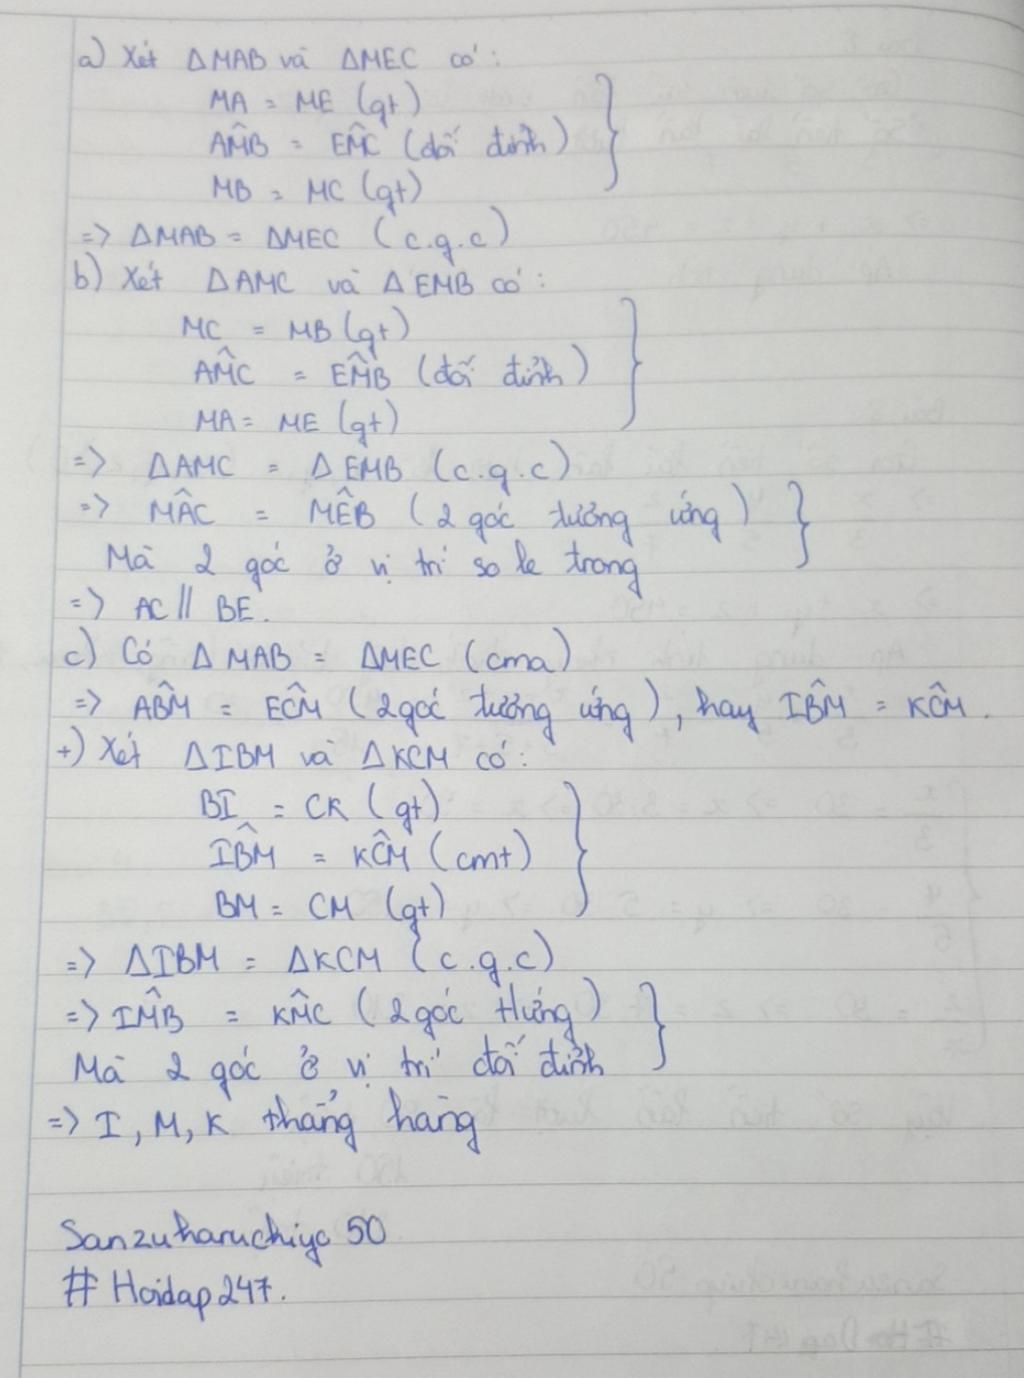 a) Xét ΔMAB và ΔMEC có:
MA = ME (gt)
AM̂B = EM̂C (đối đỉnh)
MB = MC (gt)
=> ΔMAB = ΔMEC (c.g.c)
b) Xét ΔAMC và ΔEMB có:
MC = MB (gt)
AM̂C = EM̂B (đối đỉnh)
MA = ME (gt)
=> ΔAMC = ΔEMB (c.g.c)
=> MÂC = MÊB (2 góc tương ứng)
Mà 2 góc ở vị trí so le trong
=> AC // BE.
c) Có ΔMAB = ΔMEC (cma)
=> AB̂M = EĈM (2 góc tương ứng), hay IB̂M = KĈM.
+) Xét ΔIBM và ΔKCM có:
BI = CK (gt)
IB̂M = KĈM (cmt)
BM = CM (gt)
=> ΔIBM = ΔKCM (c.g.c)
=> IM̂B = KM̂C (2 góc tứng)
Mà 2 góc ở vị trí đối đỉnh
=> I, M, K thẳng hàng
Sanzuharuchiyo 50
# Hoidap247.